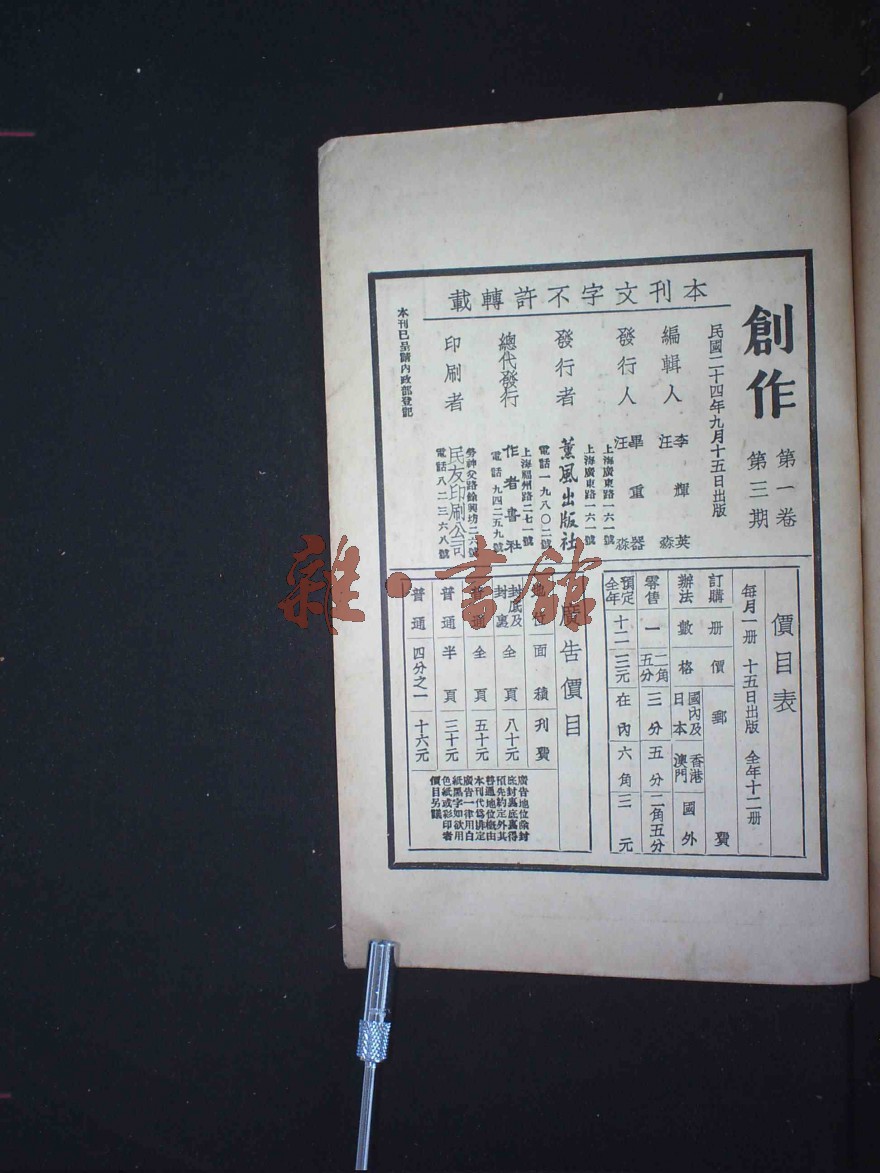 創作
第一卷 第三期
民國二十四年九月十五日出版
本刊文字不許轉載
編輯人 李輝英 汪淼
發行人 畢重器 汪淼
上海廣東路一六一號
發行者 薰風出版社
上海廣東路一六一號
電話一九八〇二號
總代發行 作者書社
上海福州路二七一號
電話九四二五九號
印刷者 民友印刷公司
勞神父路餘興坊二六號
電話八二三六八號
本刊已呈請內政部登記
價目表
每月一册 十五日出版 全年十二册
訂購辦法 册數 價格 郵費
國內及日本 香港澳門 國外
零售 一 二角五分 三分 五分 二角五分
預定全年 十二 三元 在內 六角 三元
廣告價目
地位 面積 刊費
封底及封裏 全頁 八十元
普通 全頁 五十元
普通 半頁 三十元
普通 四分之一 十六元
廣告地位除封
底封裏底裏得
預先約定外其
普通地位概由
本刊代爲排定
廣告一律用白
紙黑字如欲用
色紙或彩印者
價目另議
雜·書館